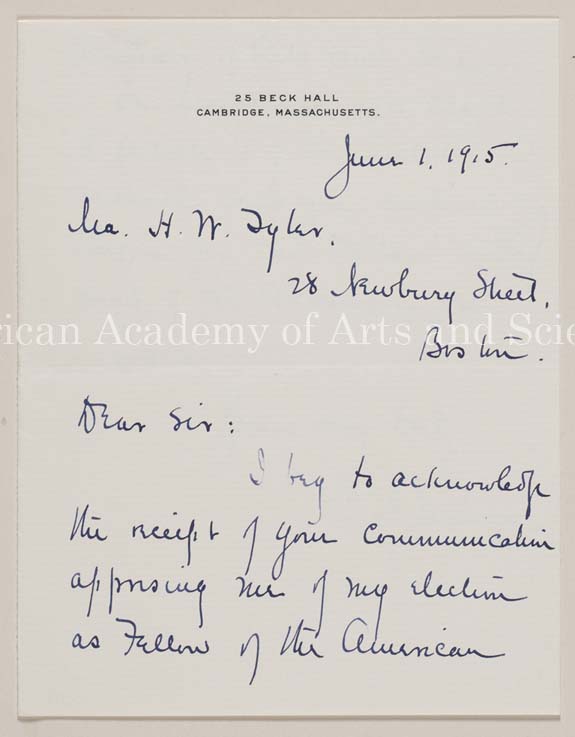 25 BECK HALL
CAMBRIDGE, MASSACHUSETTS.
June 1, 1915.
Mr. H. W. Tyler,
28 Newbury Street,
American Academy of Arts and Scie
Boston.
Dear Sir:
I beg to acknowledge
the receipt of your communication
apprising me of my election
as Fellow of the American